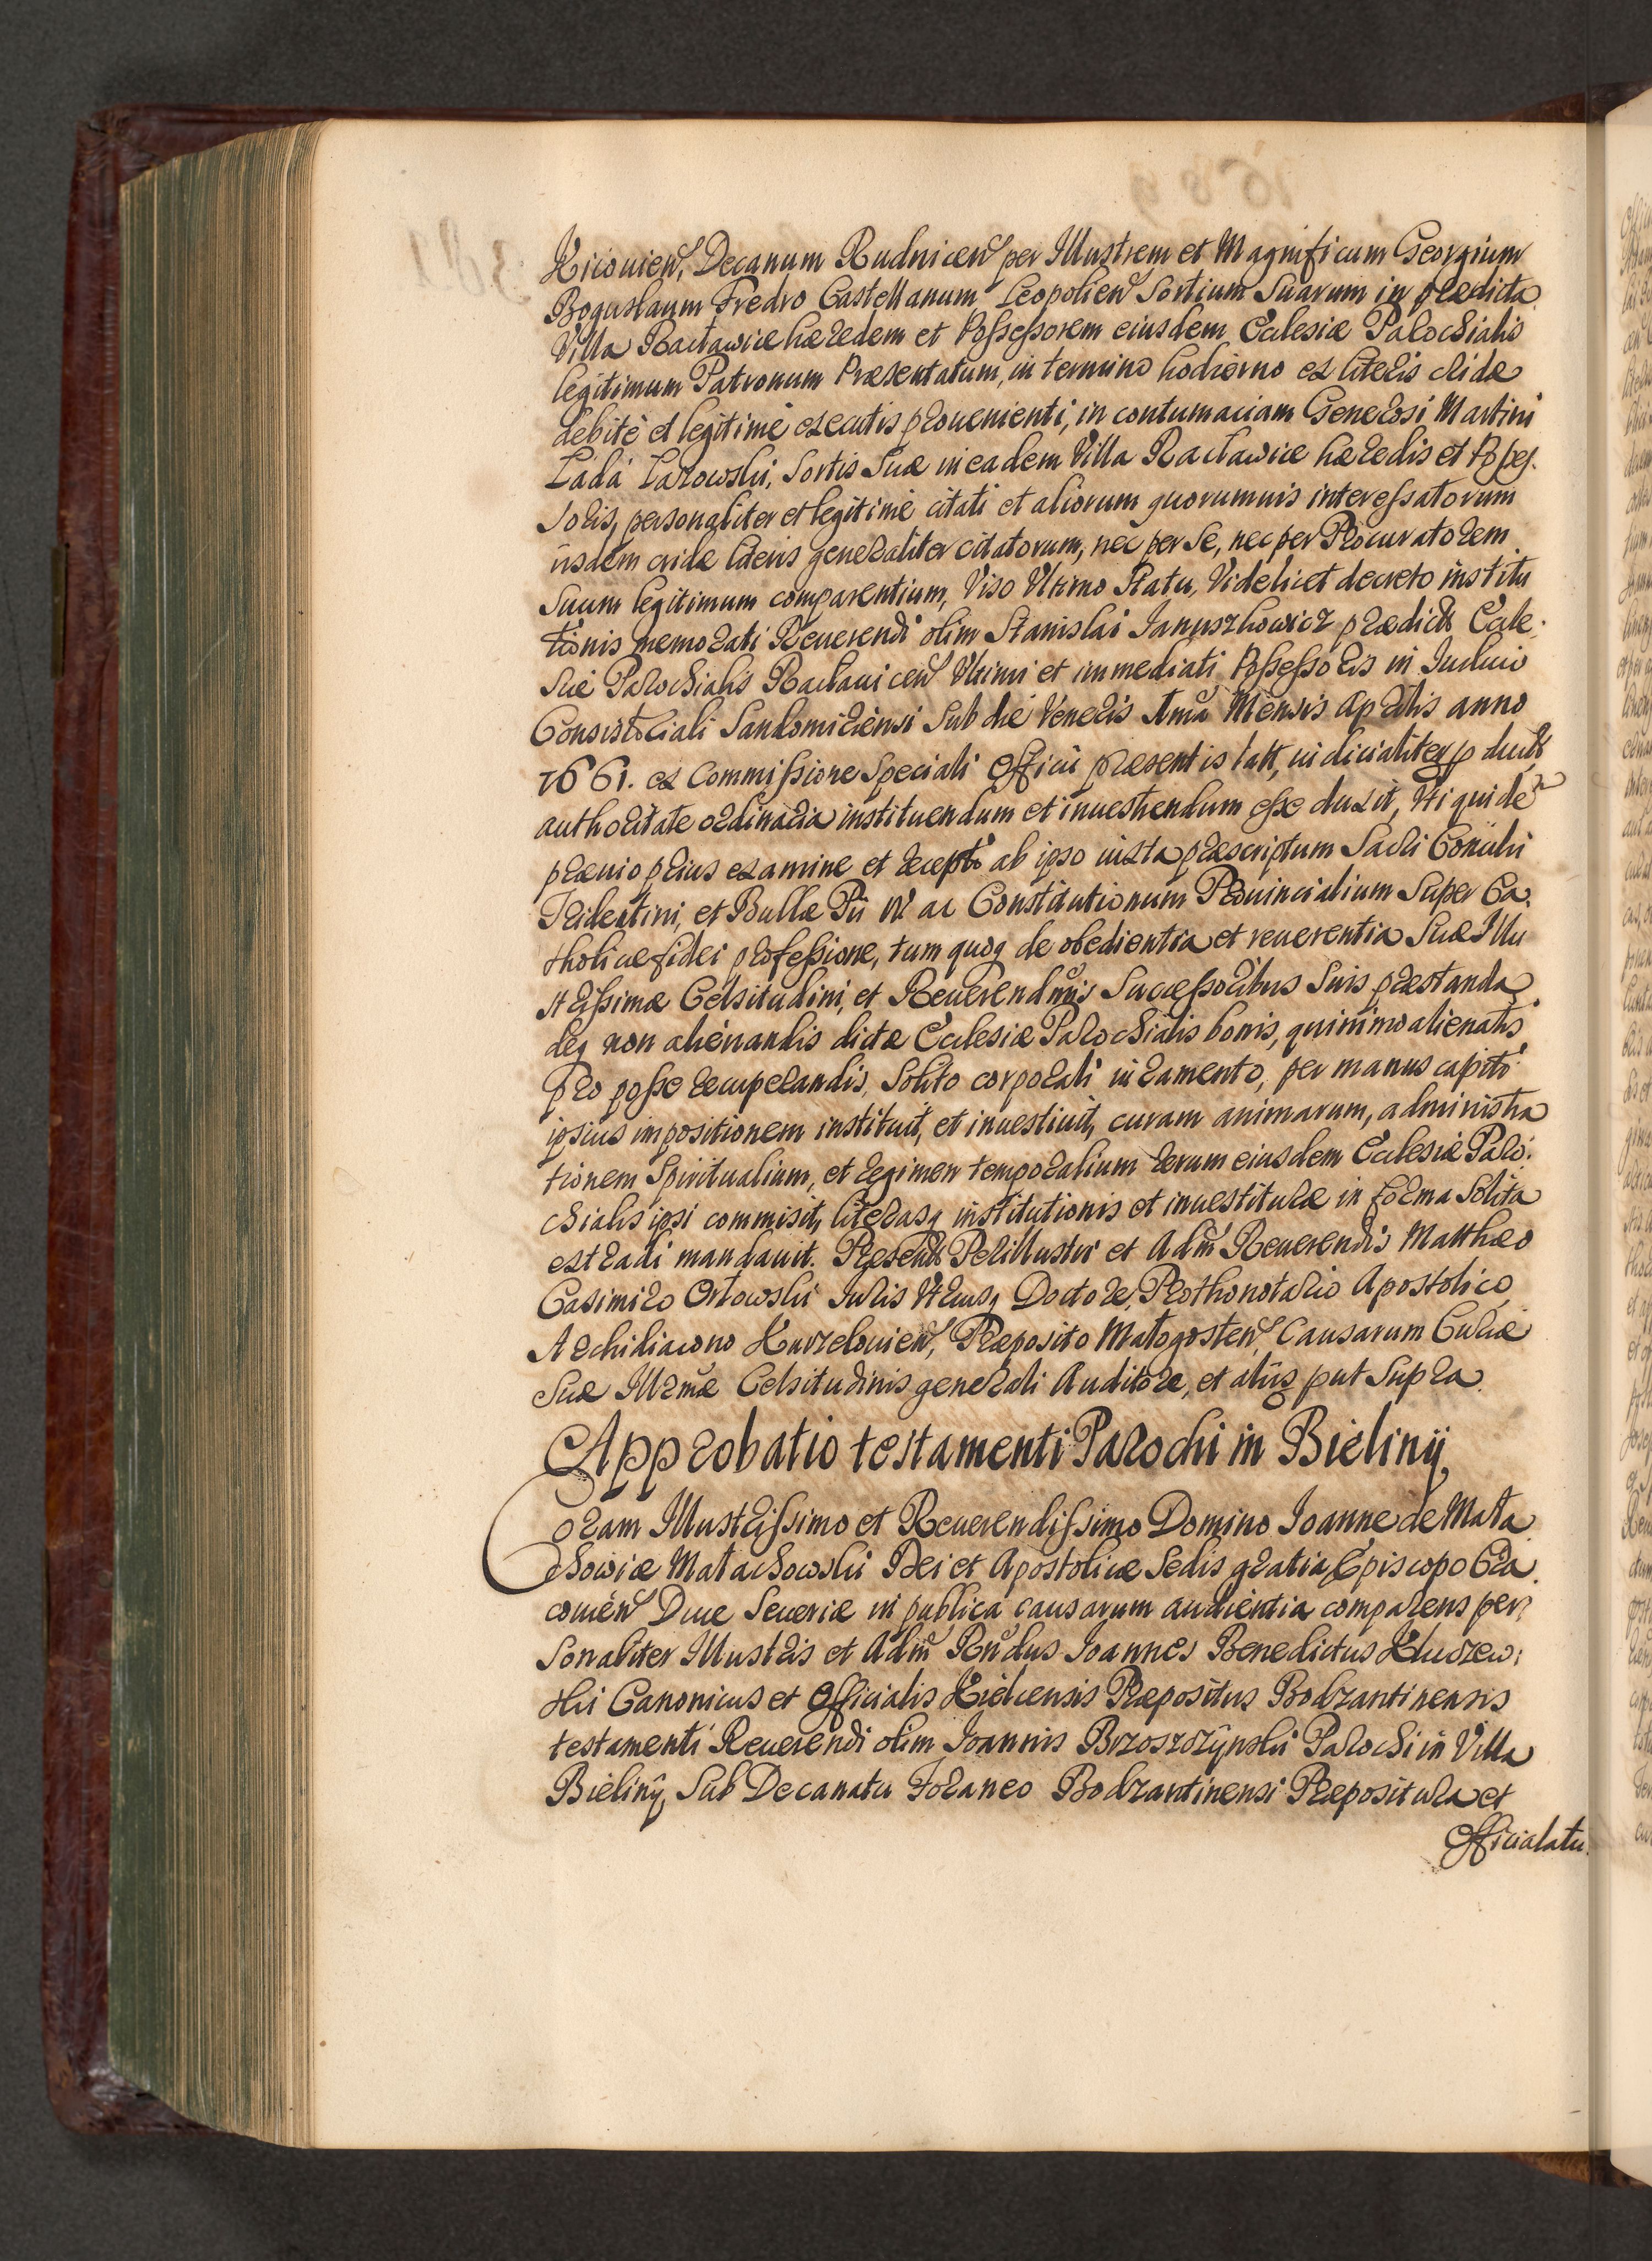 Kriouien, Decanum Rudnicen per Illustrem et Magnificum Georgium
Boguslaum Fredro Castellanum Leopolien Sortium Suarum in prædicta
Villa Racławice hæredem et Possessorem eiusdem Ecclesiæ Parochialis
legitimum Patronum Præsentatum, in termino hodierno ex literis cridæ
debitè et legitimè executis prouenienti, in contumaciam Generosi Martini
Łada Larowski, Sortis Suæ in eadem Villa Racławice hæredis et Posses.
soris, personaliter et legitimè citati et aliorum quorumuis interessatorum
iisdem cridæ literis generaliter citatorum, nec per Se, nec per Procuratorem
Suum legitimum comparentium, Viso Vltimo Statu, Videlicet decreto institu
tionis memorati Reuerendi olim Stanislai Januszkowicz prædictæ Eccle.
siæ Parochialis Raclauicen Vltimi et immediati Possessoris in Iudicio
Consistoriali Sandomiriensi Sub die Veneris 1ma Mensis Aprilis anno
1661. ex Commissione Speciali Officii præsentis latt, iudicialiter
authoritate ordinaria instituendum et inuestiendum esse duxit, Vti quidē
præuio prius examine et recepto ab ipso iuxta præscriptum Sacri Concilii
Tridentini, et Bullæ Pii IV ac Constitutionum Prouincialium Super Ca
tholicæ fidei professione, tum quoq de obedientia et reuerentia Suæ Illu
strissimæ Celsitudini, et Reuerendmis Successoribus Suis præstanda,
deq non alienandis dictæ Ecclesiæ Parochialis bonis, quinimo alienatis
pro posse recuperandis, Solito corporali iuramento, per manus capiti
ipsius impositionem instituit, et inuestiuit, curam animarum, administra
tionem Spiritualium, et regimen temporalium rerum eiusdem Ecclesiæ Paro.
chialis ipsi commisit, literasq institutionis et inuestituræ in forma Solita
extradi mandauit. Præsentt Perillustri et Adm Reuerendis Matthæo
Casimiro Orłowski Iuris Vtriusq Doctore, Prothonotario Apostolico,
Archidiacono Kurzelouien, Præposito Małogosten, Causarum Curiæ
Suæ Illrmæ Celsitudinis generali Auditore, et aliis put Supra.
Approbatio testamenti Parochi in Bieliny
Coram Illustrissimo et Reuerendissimo Domino Joanne de Mała
chowice Małachowski Dei et Apostolicæ Sedis gratia Episcopo Cra
couien Duce Seueriæ in publica causarum audientia comparens per
Sonaliter Illustris et Adm Rndus Joannes Benedictus Kluczew:
ski Canonicus et Officialis Kielcensis Præpositus Bodzantinensis
testamenti Reuerendi olim Joannis Brzoszczynski Parochi in Villa
Bieliny, Sub Decanatu foraneo Bodzantinensi Præpositura et
Officialatu.